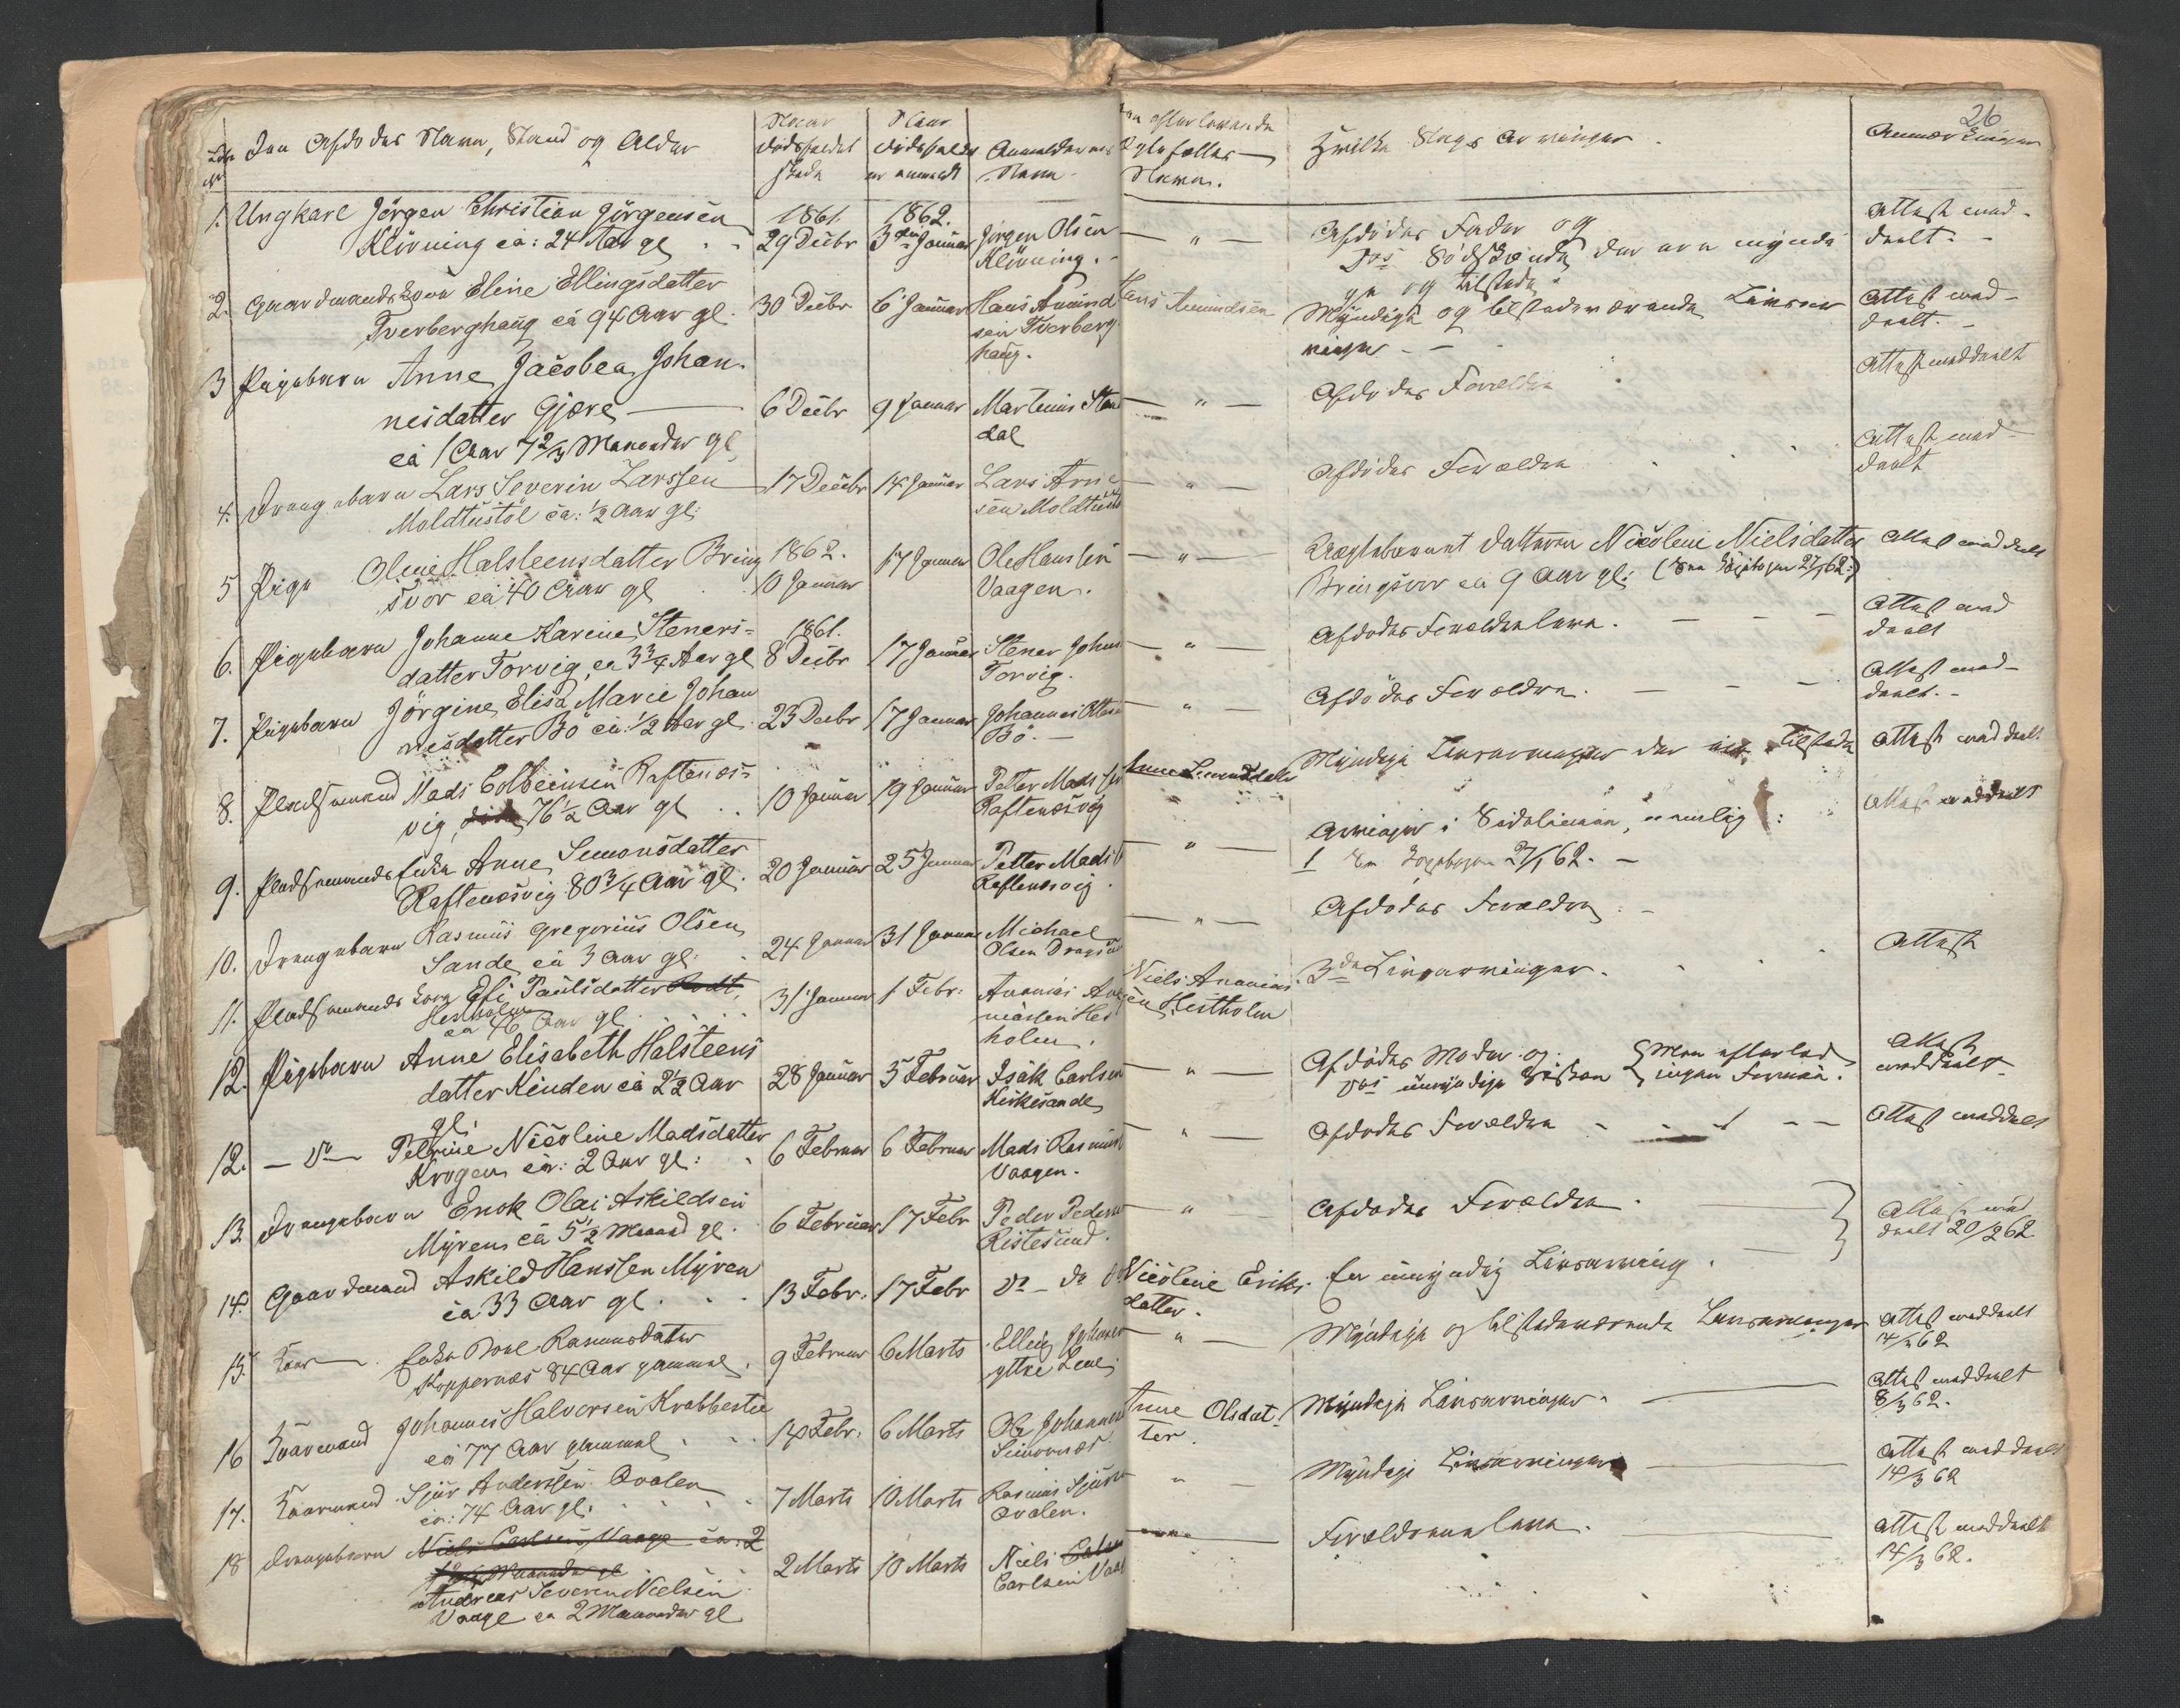 26
Den Afdødes Navn, Stand og Alder
Naar dødsfaldet skede
Naar dødsfaldet er anmeldt
Anmelderens Navn
efterlevende Ægtefælles Navn.
Hvilke Slags Arvinger.
Anmærkninger
1. Ungkarl Jörgen Christian Jörgensen
1861.
1862.
Klövning ca: 24 Aar gl
29 Decbr
3 Januar
Jörgen Olsen
Klövning.
— " —
Afdødes Fader og
Sødskende der ere mynd
ge og tilstede
Attest med-
deelt. -
2. Gaardmandskone Eline Ellingsdatter
Tverberghaug ca 94 Aar gl.
30 Decbr
6 Januar
Hans Amund
sen Tverberg
haug.
Hans Amundsen
Myndige og tilstedeværende Livsar
vinger - -
Attest med-
deelt. -
3 Pigebarn Anne Jacobea Johan-
nesdatter Gjære
ca 1 Aar 7 2/3 Maaneder gl
6 Decbr
9 Januar
Martinus Stan
dal
— " —
Afdödes Forældre
Attest meddeelt
4. Drengebarn Lars Severin Larssen
Moldtustöl ca: 1/2 Aar gl:
17 Decbr
14 Januar
Lars Arne
sen Moldtustöl
" —
Afdödes Forældre
Attest med-
deelt
5 Pige Oline Halsteensdatter Bring
svor ca 40 Aar gl
1862.
10 Januar
17 Januar
Ole Hanssen
Vaagen.
— " —
Uægtebarnet Datteren Nicoline Nielsdatter
Bringsvor ca 9 Aar gl: (See 27/1 62:)
Attest meddeelt
6. Pigebarn Johanne Karine Steners-
datter Torvig, ca 3 3/4 Aar gl
1861.
8 Decbr
17 Januar
Stener Johns
Torvig.
— " —
Afdødes Forældre leve. - - -
Attest med
deelt
7. Pigebarn Jörgine Elisa Marie Johan
nesdatter Bö ca: 1/2 Aar gl
23 Decbr
17 Januar
Johannes Olsen
Bö. -
" —
Afdödes Forældre. - - -
Attest med-
deelt. -
8. Pladsmand Mads Colbeinsen Raftenæs-
vig, 76 1/2 Aar gl
10 Januar
19 Januar
Petter Madssen
Raftenæsvig
Anne Simonsdatter
Myndige Livsarvinger der tilstede
Attest meddeelt
9. Pladsmandsenke Anne Simonsdatter
Raftenæsvig 80 3/4 Aar gl.
20 Januar
25 Januar
Petter Mads
Raftenæsvig.
— " —
Arvinger i Sidelinien, nemlig :
1 See 27/1 62. -
Attest meddeelt
10. Drengebarn Rasmus Gregorius Olsen
Sande ca 3 Aar gl.
24 Januar
31 Januar
Michael
Olsen Dragsu
— " —
Afdødes Forældre. -
11. Pladsmands Kone Eli Paulsdatter
Hestholm
ca 46 Aar gl
31 Januar
1 Febr:
Ananias An
niassen Hest
holm.
Niels Ananias
sen Hestholm
3de Livsarvinger.
Attest
12. Pigebarn Anne Elisabeth Halsteens
datter Kinden ca 2 1/2 Aar
gl.
28 Januar
5 Februar
Isak Carlsen
Kirkesande
— " —
Afdødes Moder og
umyndige Sødsken { Men efterlod
ingen Formue.
Attest
meddeelt
12. — Do — Petrine Nicoline Madsdatter
Krogen ca: 2 Aar gl:
6 Februar
6 Februar
Mads Rasmus
Vaagen.
" —
Afdødes Forældre
Attest meddeelt
13. Drengebarn Enok Olai Askildsen
Myren ca 5 1/2 Maaned gl.
6 Februar
17 Febr
Peder Peders
Ristesund.
— " —
Afdødes Forældre
Attest med
deelt 20/2 62
14. Gaardmand Askild Hanssen Myren
ca 33 Aar gl.
13 Febr.
17 Febr
Do - do
Nicoline Eriks-
datter.
En umyndig Livsarving.
15. Kaar— Enke Rasmusdatter
Koppernæs 84 Aar gammel.
9 Februar
6 Marts
Elling Johanes
yttre Lene
" —
Myndige og tilstedeværende Livsarvinger
Attest meddeelt
62
16 Kaarmand Johannes Halvorsen Krabbestu
ca 77 Aar gammel
14 Febr.
6 Marts
Ole Johannes
Anne Olsdat-
ter
Myndige Livsarvinger
Attest meddeelt
8/3 62.
17. Kaarmand Sjur Anderssen Qvalen
ca: 74 Aar gl.
7 Marts
10 Marts
Rasmus Sjurs
Qvalen.
" -
Myndige Livsarvinger
Attest meddeelt
14/3 62
18 Drengebarn Niels Carlsen Vaage ca: 2
Andreas Severin Nielsen
Vaage ca 2 Maaneder gl
2 Marts
10 Marts
Niels
Carlsen Vaag
Forældrene leve.
Attest meddeelt
14/3 62.